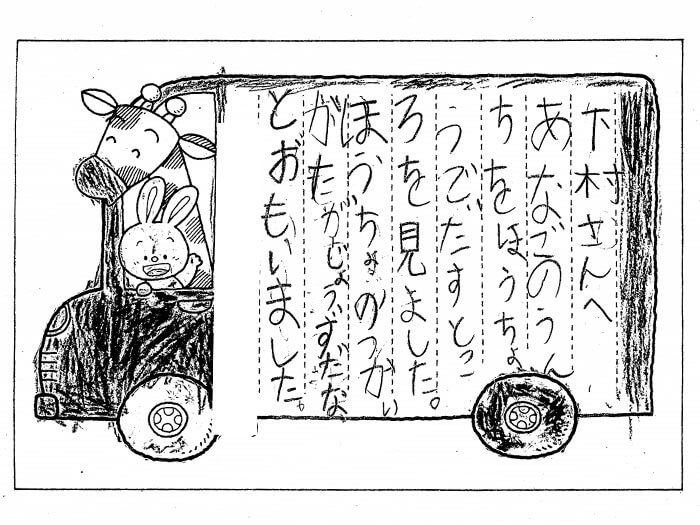 下村さんへ
あなごのうん
ちをほうちょ
うでだすとこ
ろを見よした。
ほうちょのつかい
がたがじょうずだな
とおもいました。